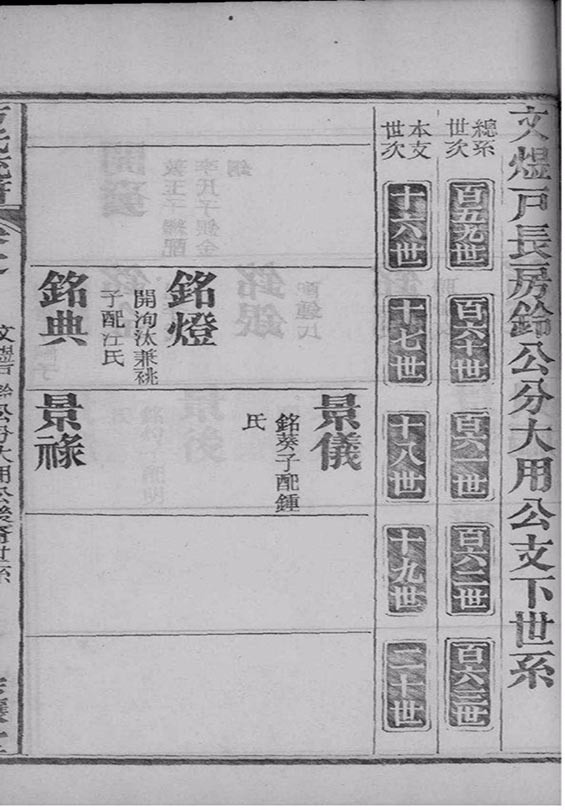 文煜戸長房鈴公分大用公支下世系
總系
世次
百五九世
百六十世
百六一世
百六二世
百六三世
本支
世次
十六世
十七世
十八世
十九世
二十世
銘燈
開洵汰兼祧
子配汪氏
銘典
景儀
銘葵子配鍾
氏
景祿